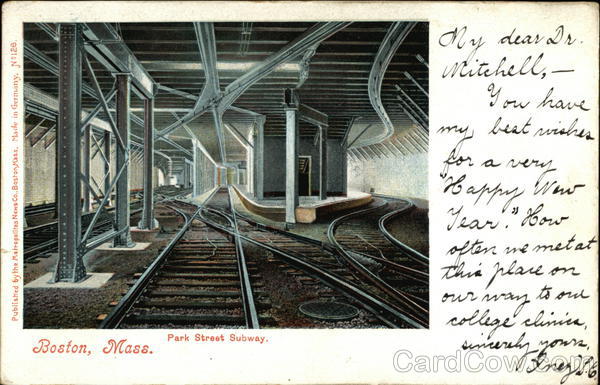 Published by the Metropolitan News Co., Boston, Mass. Made in Germany. No 1126.
My dear Dr.
Mitchell, –
You have
my best wishes
for a very
"Happy New
Year." How
often we met at
this place on
our way to our
college clinics,
sincerely yours,
Park Street Subway.
Boston, Mass.
CardCow.com